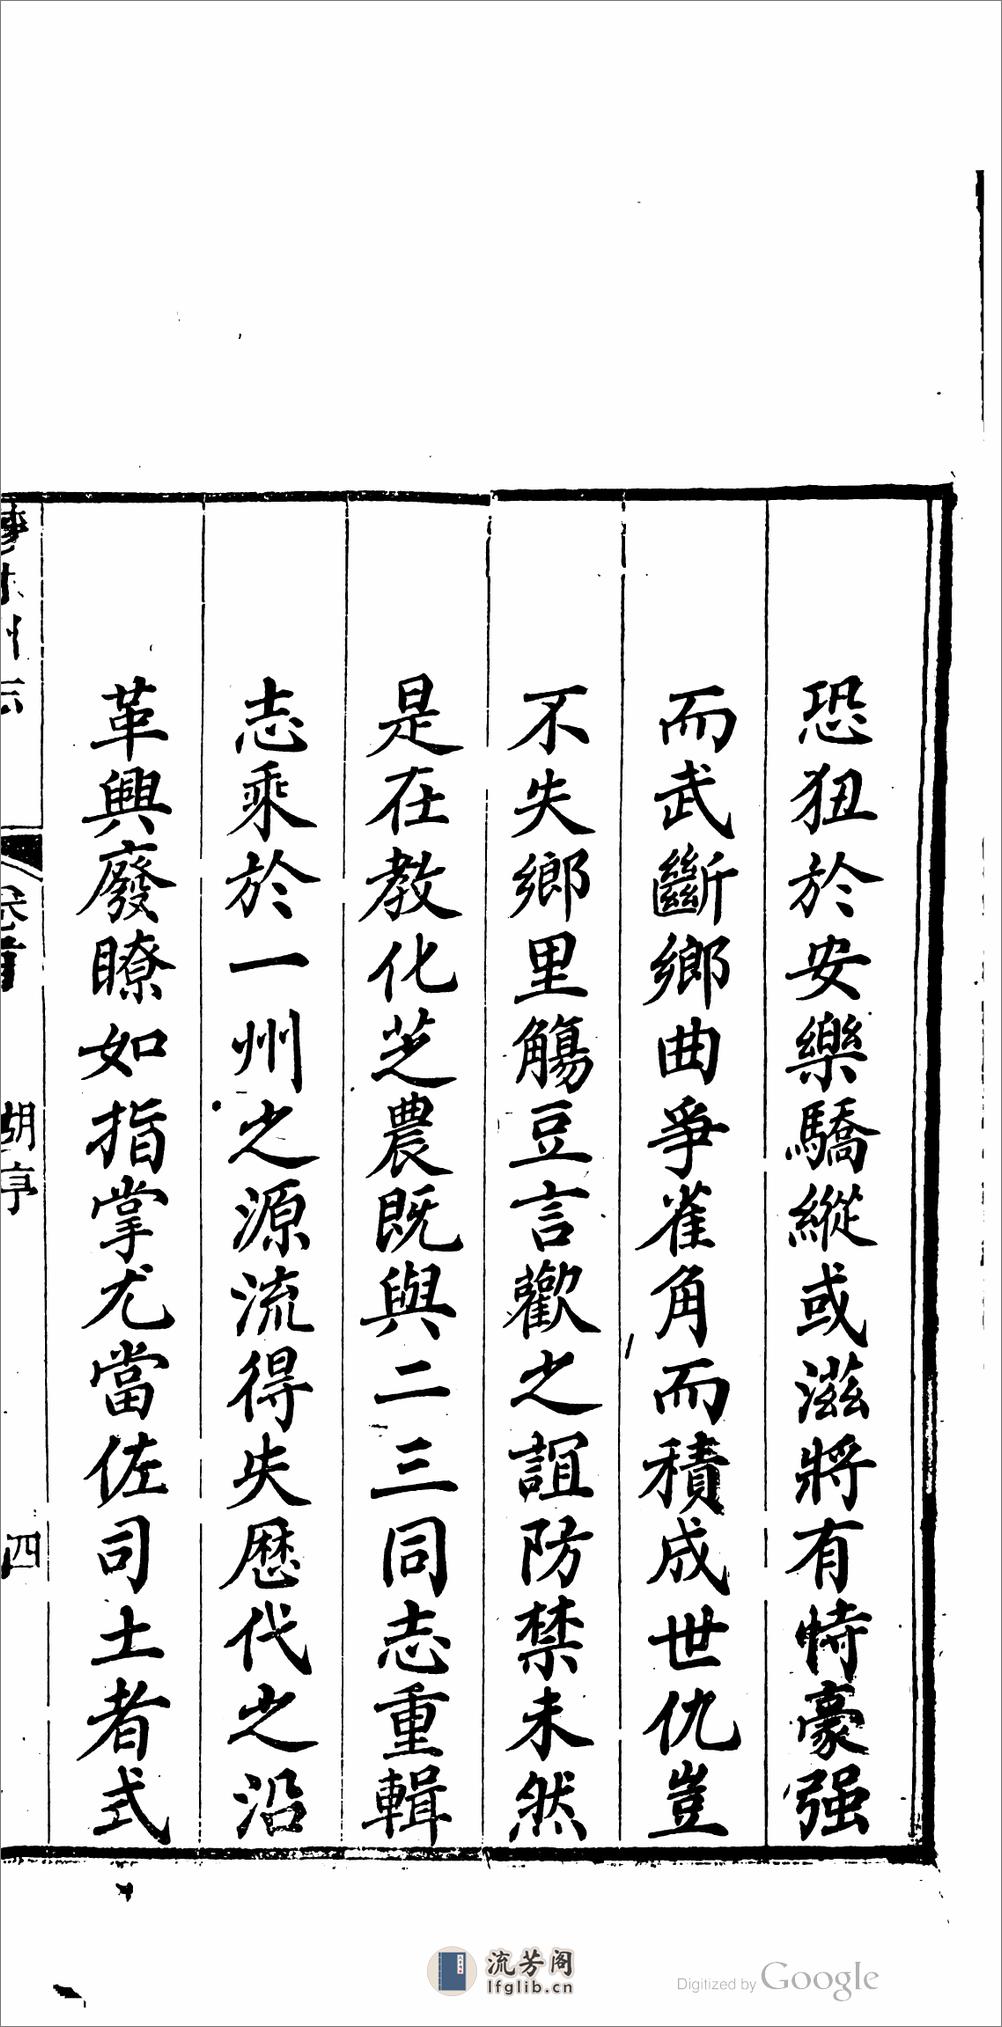 恐狃於安樂驕縱或滋將有恃豪强
而武斷鄉曲爭雀角而積成世仇豈
不失鄉里觴豆言歡之誼防禁未然
是在教化芝農既與二三同志重輯
志乘於一州之源流得失歷代之沿
革興廢瞭如指掌尤當佐司土者式
州志
卷首
胡序
四
流芳阁
lfglib.cn
Digitized by Google